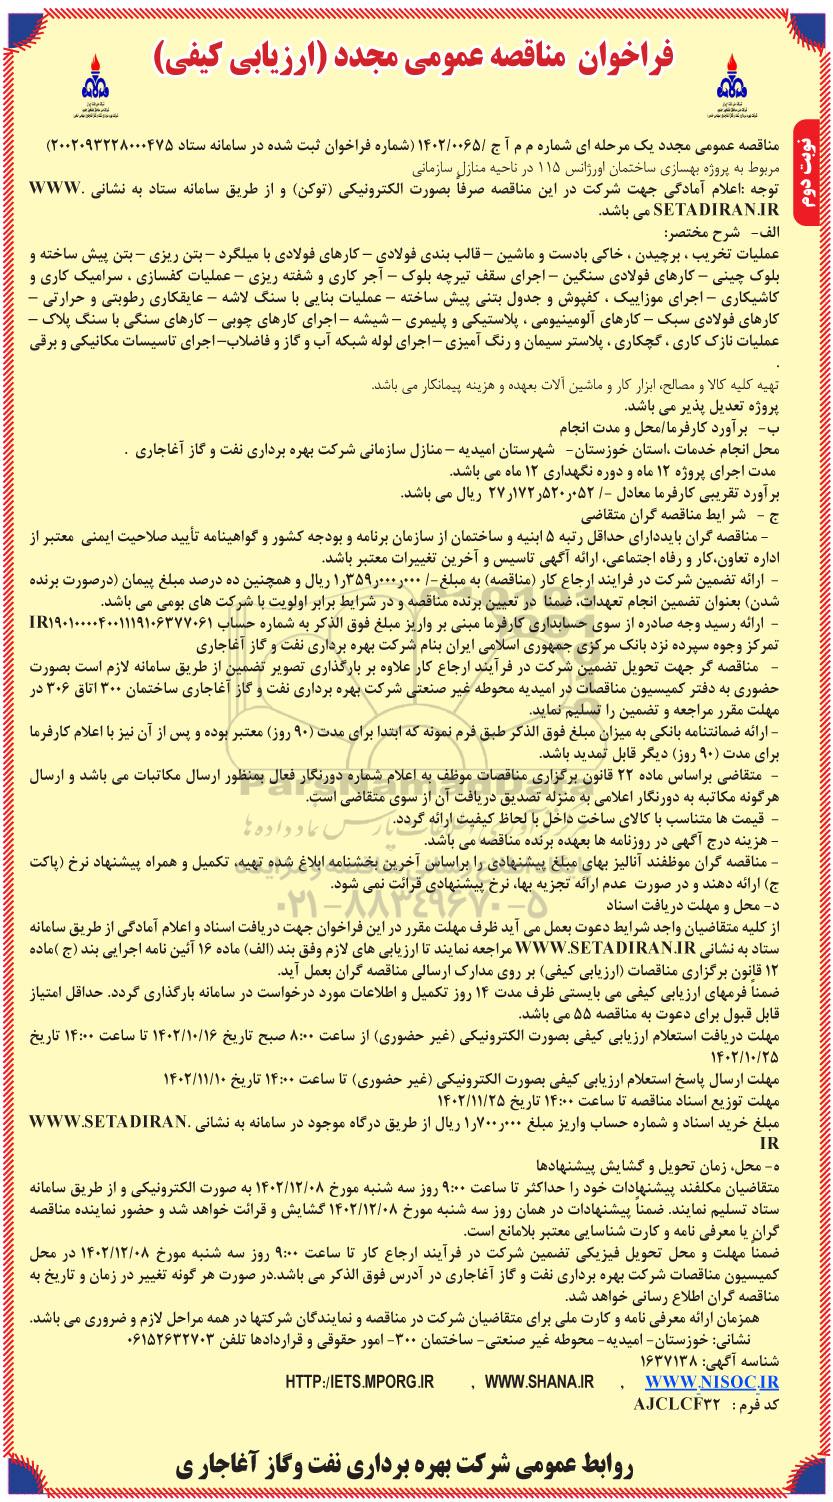 فراخوان مناقصه عمومی مجدد (ارزیابی کیفی)
نوبت دوم
مناقصه عمومی مجدد یک مرحله ای شماره م م آ ج /۱۴۰۲/۰۰۶۵ (شماره فراخوان ثبت شده در سامانه ستاد ۲۰۰۲۰۹۳۲۲۸۰۰۰۴۷۵)
مربوط به پروژه بهسازی ساختمان اورژانس ۱۱۵ در ناحیه منازل سازمانی
توجه :اعلام آمادگی جهت شرکت در این مناقصه صرفاً بصورت الکترونیکی (توکن) و از طریق سامانه ستاد به نشانی WWW.
SETADIRAN.IR می باشد.
الف- شرح مختصر:
عملیات تخریب ، برچیدن ، خاکی بادست و ماشین – قالب بندی فولادی – کارهای فولادی با میلگرد – بتن ریزی – بتن پیش ساخته و
بلوک چینی – کارهای فولادی سنگین – اجرای سقف تیرچه بلوک – آجر کاری و شفته ریزی – عملیات کفسازی ، سرامیک کاری و
کاشیکاری – اجرای موزاییک ، کفپوش و جدول بتنی پیش ساخته – عملیات بنایی با سنگ لاشه – عایقکاری رطوبتی و حرارتی –
کارهای فولادی سبک – کارهای آلومینیومی ، پلاستیکی و پلیمری – شیشه – اجرای کارهای چوبی – کارهای سنگی با سنگ پلاک –
عملیات نازک کاری ، گچکاری ، پلاستر سیمان و رنگ آمیزی – اجرای لوله شبکه آب و گاز و فاضلاب– اجرای تاسیسات مکانیکی و برقی
.
تهیه کلیه کالا و مصالح، ابزار کار و ماشین آلات بعهده و هزینه پیمانکار می باشد.
پروژه تعدیل پذیر می باشد.
ب- برآورد کارفرما/محل و مدت انجام
محل انجام خدمات ،استان خوزستان- شهرستان امیدیه – منازل سازمانی شرکت بهره برداری نفت و گاز آغاجاری .
مدت اجرای پروژه ۱۲ ماه و دوره نگهداری ۱۲ ماه می باشد.
برآورد تقریبی کارفرما معادل -/ ۲۷٫۱۷۲٫۵۲۰٫۰۵۲ ریال می باشد.
ج - شر ایط مناقصه گران متقاضی
- مناقصه گران بایددارای حداقل رتبه ۵ ابنیه و ساختمان از سازمان برنامه و بودجه کشور و گواهینامه تأیید صلاحیت ایمنی معتبر از
اداره تعاون،کار و رفاه اجتماعی، ارائه آگهی تاسیس و آخرین تغییرات معتبر باشد.
- ارائه تضمین شرکت در فرایند ارجاع کار (مناقصه) به مبلغ-/ ۱٫۳۵۹٫۰۰۰٫۰۰۰ ریال و همچنین ده درصد مبلغ پیمان (درصورت برنده
شدن) بعنوان تضمین انجام تعهدات، ضمنا در تعیین برنده مناقصه و در شرایط برابر اولویت با شرکت های بومی می باشد.
- ارائه رسید وجه صادره از سوی حسابداری کارفرما مبنی بر واریز مبلغ فوق الذکر به شماره حساب IR۱۹۰۱۰۰۰۰۴۰۰۱۱۱۹۱۰۶۳۷۷۰۶۱
تمرکز وجوه سپرده نزد بانک مرکزی جمهوری اسلامی ایران بنام شرکت بهره برداری نفت و گاز آغاجاری
- مناقصه گر جهت تحویل تضمین شرکت در فرآیند ارجاع کار علاوه بر بارگذاری تصویر تضمین از طریق سامانه لازم است بصورت
حضوری به دفتر کمیسیون مناقصات در امیدیه محوطه غیر صنعتی شرکت بهره برداری نفت و گاز آغاجاری ساختمان ۳۰۰ اتاق ۳۰۶ در
مهلت مقرر مراجعه و تضمین را تسلیم نماید.
- ارائه ضمانتنامه بانکی به میزان مبلغ فوق الذکر طبق فرم نمونه که ابتدا برای مدت (۹۰ روز) معتبر بوده و پس از آن نیز با اعلام کارفرما
برای مدت (۹۰ روز) دیگر قابل تمدید باشد.
- متقاضی براساس ماده ۲۲ قانون برگزاری مناقصات موظف به اعلام شماره دورنگار فعال بمنظور ارسال مکاتبات می باشد و ارسال
هرگونه مکاتبه به دورنگار اعلامی به منزله تصدیق دریافت آن از سوی متقاضی است.
- قیمت ها متناسب با کالای ساخت داخل با لحاظ کیفیت ارائه گردد.
- هزینه درج آگهی در روزنامه ها بعهده برنده مناقصه می باشد.
- مناقصه گران موظفند آنالیز بهای مبلغ پیشنهادی را براساس آخرین بخشنامه ابلاغ شده تهیه، تکمیل و همراه پیشنهاد نرخ (پاکت
ج) ارائه دهند و در صورت عدم ارائه تجزیه بها، نرخ پیشنهادی قرائت نمی شود.
د- محل و مهلت دریافت اسناد
از کلیه متقاضیان واجد شرایط دعوت بعمل می آید ظرف مهلت مقرر در این فراخوان جهت دریافت اسناد و اعلام آمادگی از طریق سامانه
ستاد به نشانی WWW.SETADIRAN.IR مراجعه نمایند تا ارزیابی های لازم وفق بند (الف) ماده ۱۶ آئین نامه اجرایی بند (ج )ماده
۱۲ قانون برگزاری مناقصات (ارزیابی کیفی) بر روی مدارک ارسالی مناقصه گران بعمل آید.
ضمناً فرمهای ارزیابی کیفی می بایستی ظرف مدت ۱۴ روز تکمیل و اطلاعات مورد درخواست در سامانه بارگذاری گردد. حداقل امتیاز
قابل قبول برای دعوت به مناقصه ۵۵ می باشد.
مهلت دریافت استعلام ارزیابی کیفی بصورت الکترونیکی (غیر حضوری) از ساعت ۸:۰۰ صبح تاریخ ۱۴۰۲/۱۰/۱۶ تا ساعت ۱۴:۰۰ تاریخ
۱۴۰۲/۱۰/۲۵
مهلت ارسال پاسخ استعلام ارزیابی کیفی بصورت الکترونیکی (غیر حضوری) تا ساعت ۱۴:۰۰ تاریخ ۱۴۰۲/۱۱/۱۰
مهلت توزیع اسناد مناقصه تا ساعت ۱۴:۰۰ تاریخ ۱۴۰۲/۱۱/۲۵
مبلغ خرید اسناد و شماره حساب واریز مبلغ ۱٫۷۰۰٫۰۰۰ ریال از طریق درگاه موجود در سامانه به نشانی WWW.SETADIRAN.
IR
ه- محل، زمان تحویل و گشایش پیشنهادها
متقاضیان مکلفند پیشنهادات خود را حداکثر تا ساعت ۹:۰۰ روز سه شنبه مورخ ۱۴۰۲/۱۲/۰۸ به صورت الکترونیکی و از طریق سامانه
ستاد تسلیم نمایند. ضمناً پیشنهادات در همان روز سه شنبه مورخ ۱۴۰۲/۱۲/۰۸ گشایش و قرائت خواهد شد و حضور نماینده مناقصه
گران با معرفی نامه و کارت شناسایی معتبر بلامانع است.
ضمناً مهلت و محل تحویل فیزیکی تضمین شرکت در فرآیند ارجاع کار تا ساعت ۹:۰۰ روز سه شنبه مورخ ۱۴۰۲/۱۲/۰۸ در محل
کمیسیون مناقصات شرکت بهره برداری نفت و گاز آغاجاری در آدرس فوق الذکر می باشد.در صورت هر گونه تغییر در زمان و تاریخ به
مناقصه گران اطلاع رسانی خواهد شد.
همزمان ارائه معرفی نامه و کارت ملی برای متقاضیان شرکت در مناقصه و نمایندگان شرکتها در همه مراحل لازم و ضروری می باشد.
نشانی: خوزستان- امیدیه- محوطه غیر صنعتی- ساختمان ۳۰۰- امور حقوقی و قراردادها تلفن ۰۶۱۵۲۶۳۲۷۰۳
شناسه آگهی: ۱۶۳۷۱۳۸
WWW.NISOC.IR , WWW.SHANA.IR , HTTP:/IETS.MPORG.IR
کد فرم : AJCLCF۳۲
روابط عمومی شرکت بهره برداری نفت وگاز آغاجار ی
ParsNamadData
۰۲۱-۸۸۳۴۹۶۷۰-۵